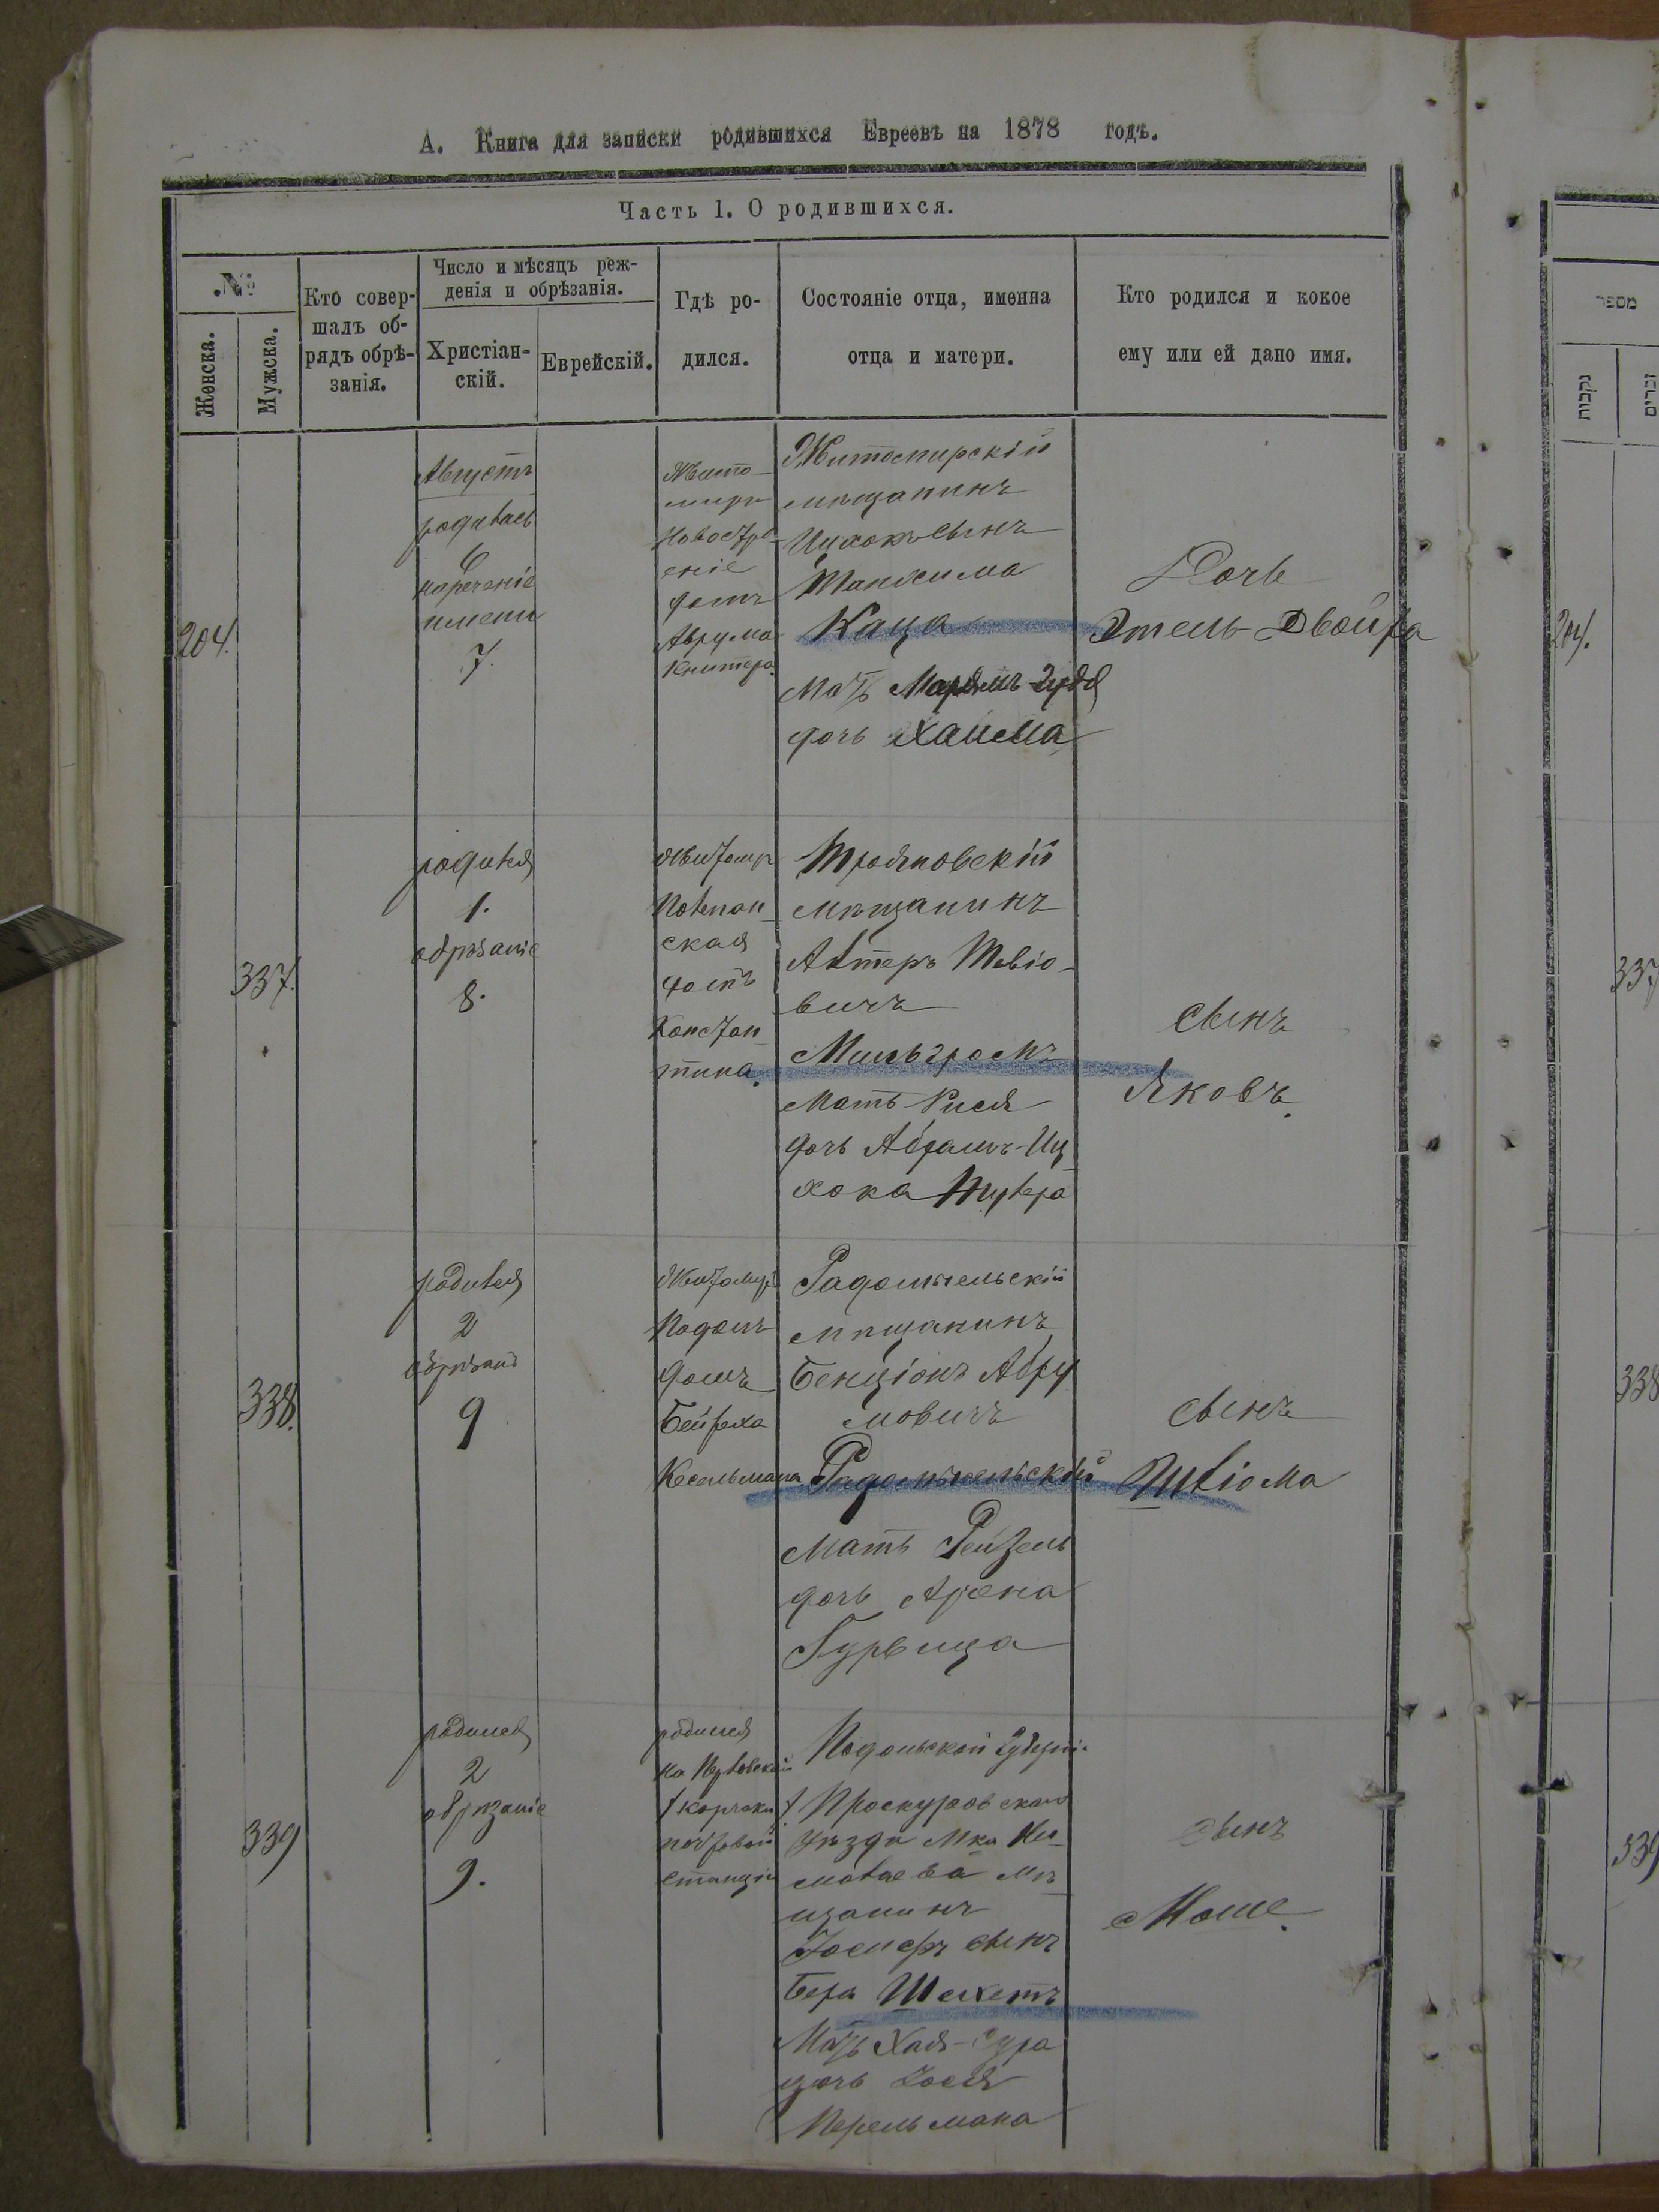 А. Книга для записки родившихся Евреевъ на 1878 годъ.
Часть 1. О родившихся.
№
Женска.
Мужска.
Кто совер-
шалъ об-
рядъ обрѣ-
занія.
Число и мѣсяцъ реж-
денія и обрѣзанія.
Христіан-
скій.
Еврейскій.
Гдѣ ро-
дился.
Состояніе отца, именна
отца и матери.
Кто родился и кокое
ему или ей дано имя.
204.
Августъ
родилась
6
нареченіе
имени
7.
Жито-
миръ
Новостро-
еніе
домъ
Аврума
Книтера.
Житомирскій
мѣщанинъ
Ицхокъ сынъ
Танхима
Каца
Мать Марямъ-Гудя
дочь Хаима
Дочь
Этель-Двойра
337.
родился
1.
обрѣзаніе
8.
Житомиръ
ская
домъ
Констан-
тина.
Трояновскій
мѣщанинъ
Алтеръ Тевіо-
вичъ
Мильгромъ
Мать Рися
дочь Абрамъ-Иц
хока
сынъ
Яковъ.
338.
родился
2
обрѣзаніе
9
Житомиръ
Подолъ
домъ
Бейреха
Кесельмана
Радомысльскій
мѣщанинъ
Бенціонъ Абру
мовичъ
Радомысльскій
Мать Рейзель
дочь Арона
Гурвица
сынъ
Шліома
339
родился
2
обрѣзаніе
9.
родился
на
почтовой
станціи
Подольской Губерніи
Проскуровскаго
Уѣзда М-ка Ни-
колаева мѣ-
щанинъ
Іосифъ сынъ
Бера Шехетъ
Мать Хая-Сура
дочь Іося
Перельмана
сынъ
Моше.
מספר
נקבות
זכרים
204.
337
338
339